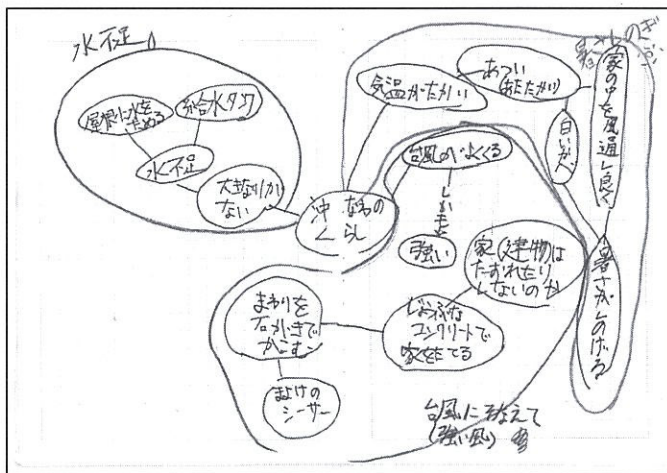 水不足
屋根に水を
ためる
給水タンク
水不足
大きな川が
ない
沖なわの
くらし
気温がたかい
あつい
(あたたかい)
家の中を風通し良く
白いかべ
暑さがしのげる
台風がよくくる
しかも
強い
家(建物)は
たおれたり
しないのか
じょうぶな
コンクリートで
家をたてる
まわりを
石がきで
かこむ
まよけの
シーサー
台風に そなえて
(強い風)